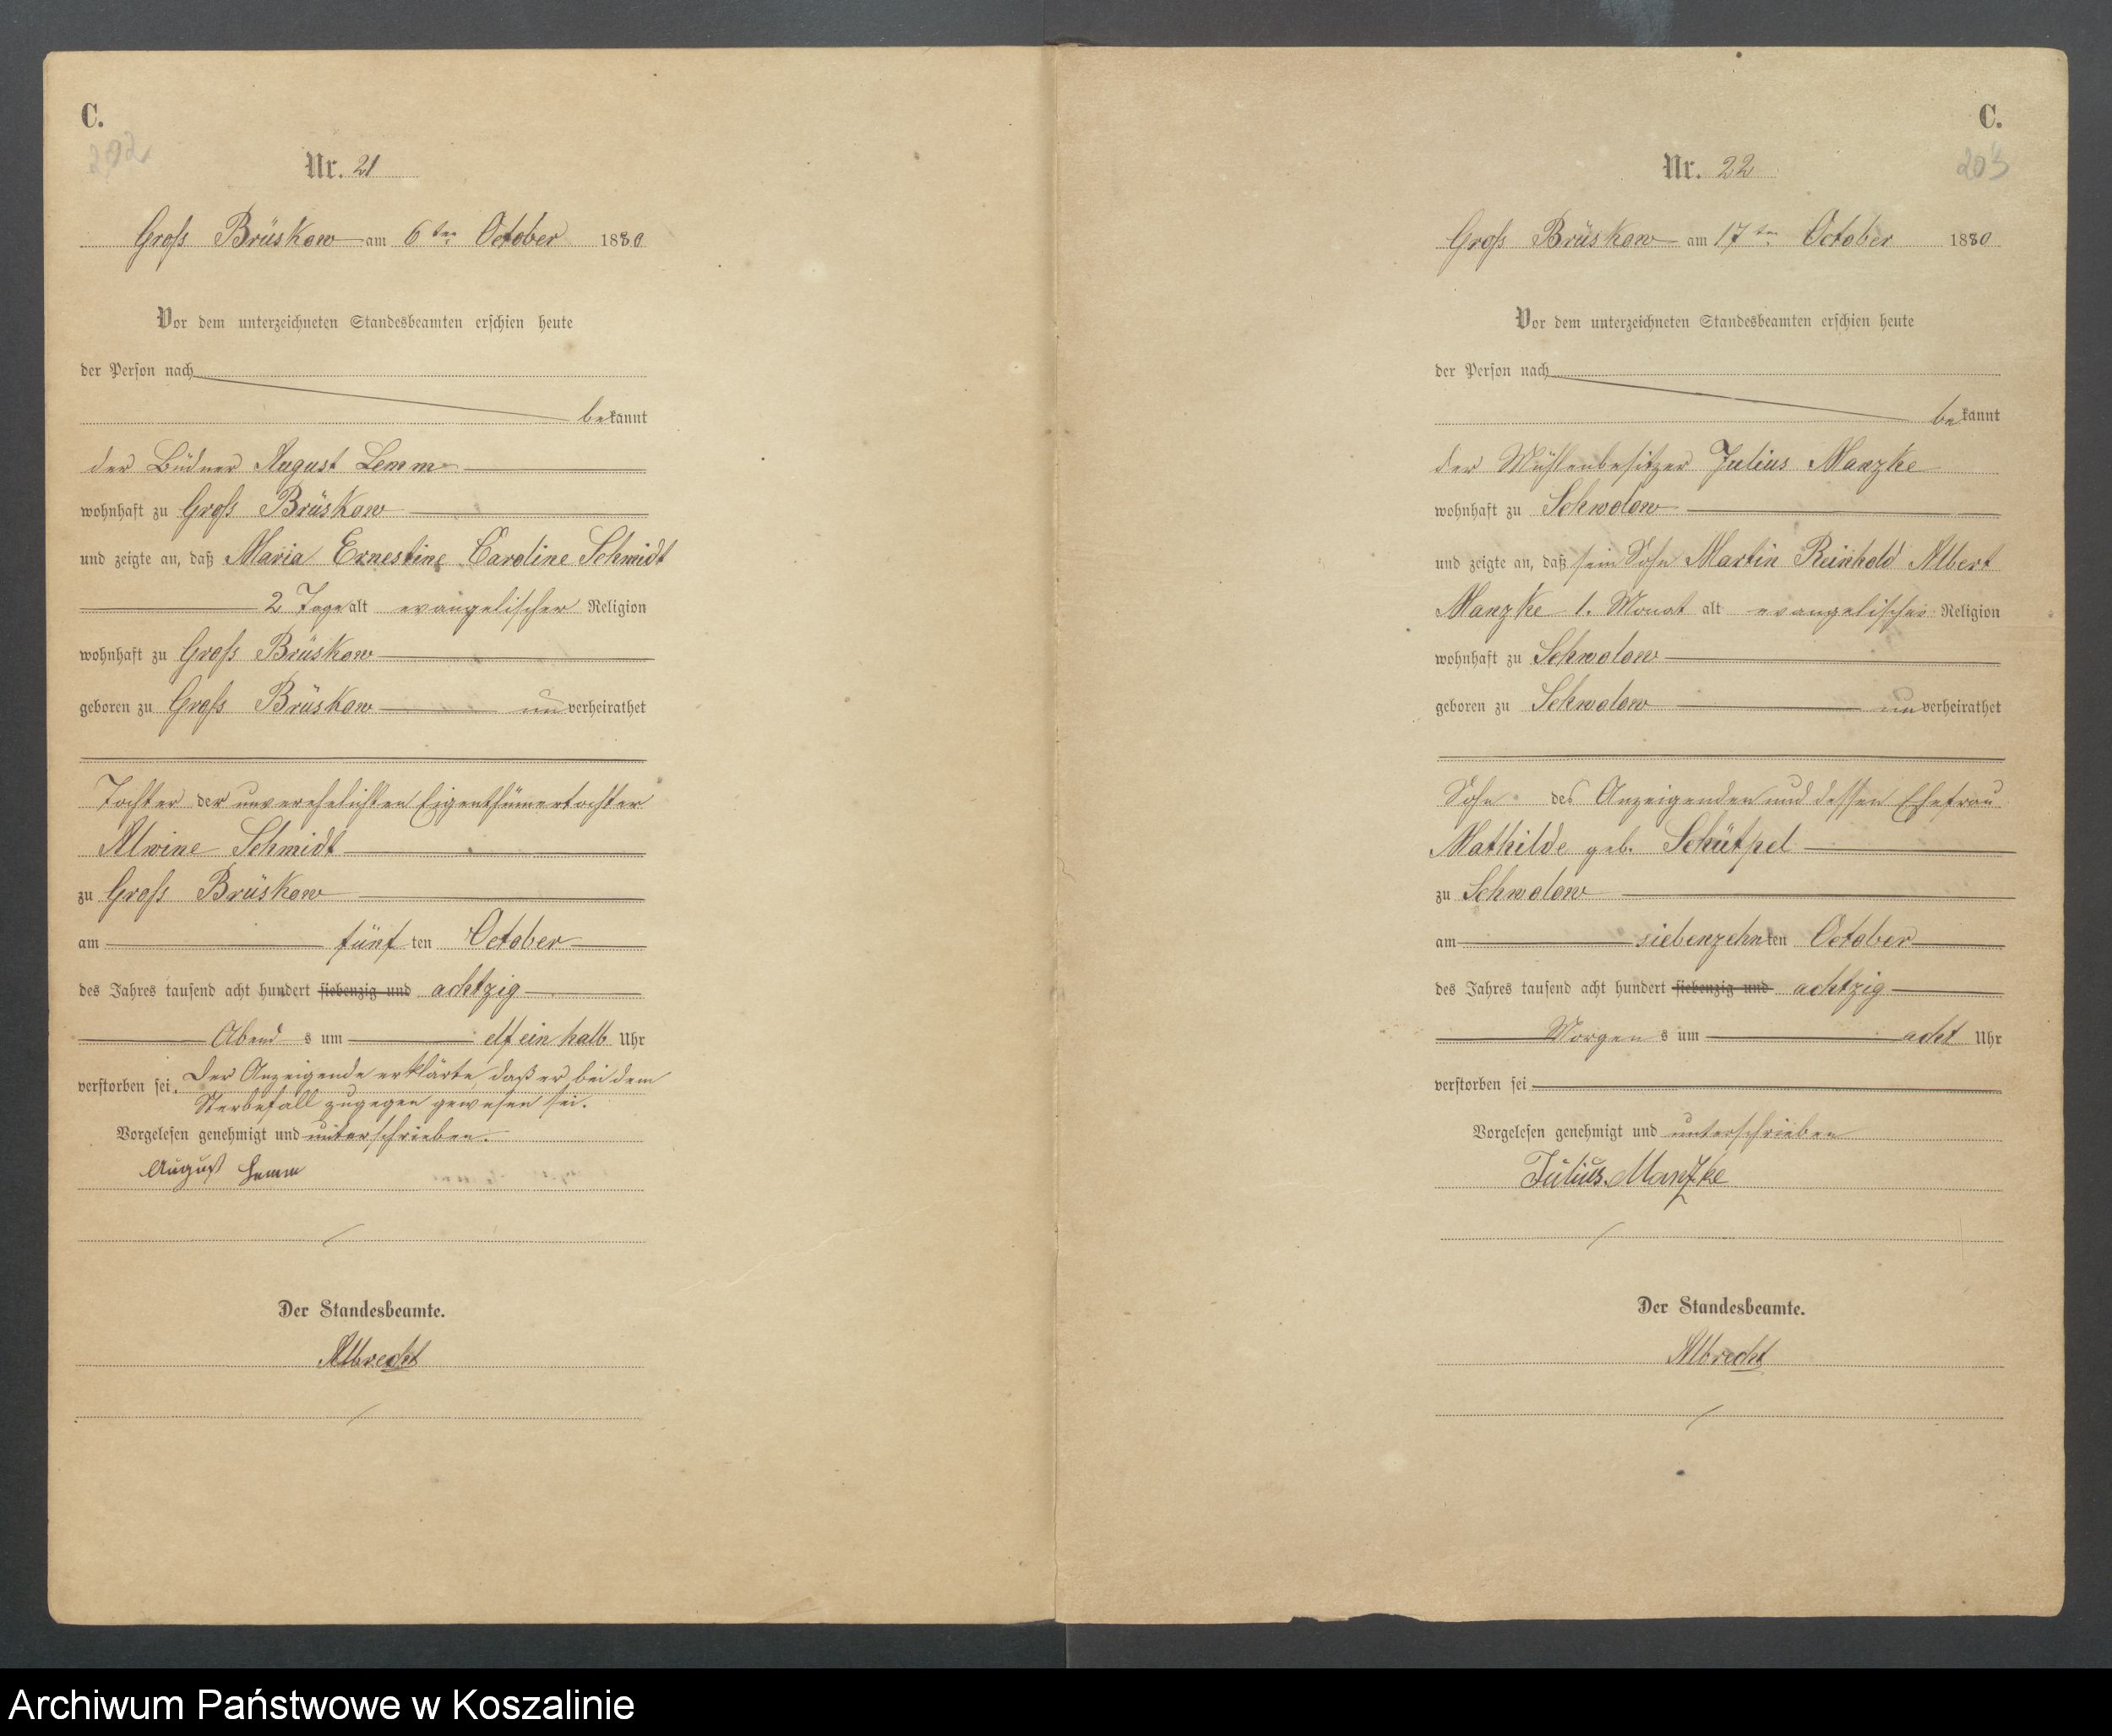 C.
202
Nr. 21
Groß Brüskow am 6ten October 1880
Vor dem unterzeichneten Standesbeamten erschien heute
der Person nach
bekannt
der Büdner August Lemm
wohnhaft zu Groß Brüskow
und zeigte an, daß Maria Ernestine Caroline Schmidt
2 Tage alt evangelischer Religion
wohnhaft zu Groß Brüskow
geboren zu Groß Brüskow unverheirathet
Tochter der unverehelichten Eigenthümertochter
Alwine Schmidt
zu Groß Brüskow
am fünften October
des Jahres tausend acht hundert siebenzig und achtzig
Abends um elf ein halb Uhr
verstorben sei. Der Anzeigende erklärte, daß er bei dem
Sterbefall zugegen gewesen sei.
Vorgelesen genehmigt und unterschrieben.
August Lemm
Der Standesbeamte.
Albrecht
C.
203
Nr. 22
Groß Brüskow am 17ten October 1880
Vor dem unterzeichneten Standesbeamten erschien heute
der Person nach
bekannt
der Mühlenbesitzer Julius Manzke
wohnhaft zu Schwolow
und zeigte an, daß sein Sohn Martin Reinhold Albert
Manzke 1. Monat alt evangelischer Religion
wohnhaft zu Schwolow
geboren zu Schwolow unverheirathet
Sohn des Anzeigenden und dessen Ehefrau
Mathilde geb.
zu Schwolow
am siebenzehnten October
des Jahres tausend acht hundert siebenzig und achtzig
Morgens um acht Uhr
verstorben sei
Vorgelesen genehmigt und unterschrieben
Julius Manzke
Der Standesbeamte.
Albrecht
Archiwum Państwowe w Koszalinie